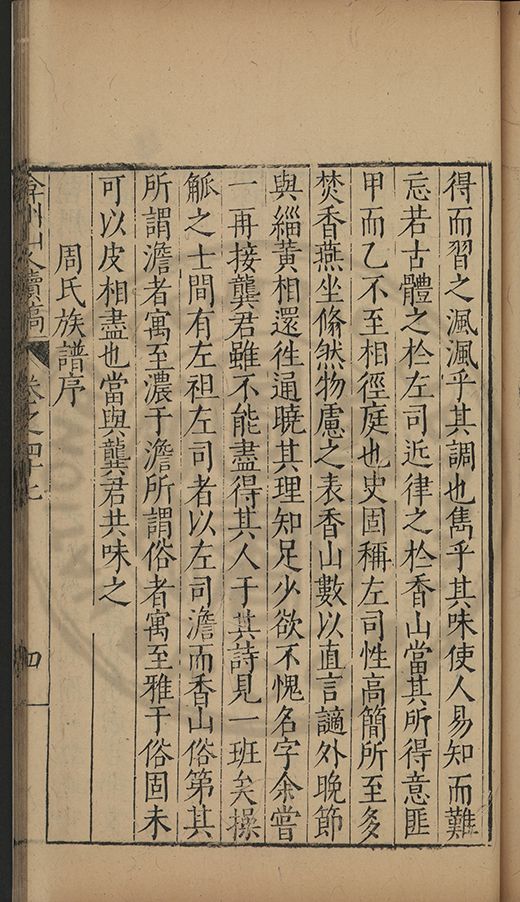 得而習之渢渢乎其調也雋乎其味使人易知而難
忘若古體之扵左司近律之扵香山當其所得意匪
甲而乙不至相徑庭也史固稱左司性高簡所至多
焚香燕坐翛然物慮之表香山數以直言謫外晚節
與緇黄相還徃通曉其理知足少欲不愧名字余嘗
一再接龔君雖不能盡得其人于其詩見一班矣操
觚之士間有左袒左司者以左司澹而香山俗第其
所謂澹者寓至濃于澹所謂俗者寓至雅于俗固未
可以皮相盡也當與龔君共味之
周氏族譜序
弇州山人續稿 卷之四十七 四